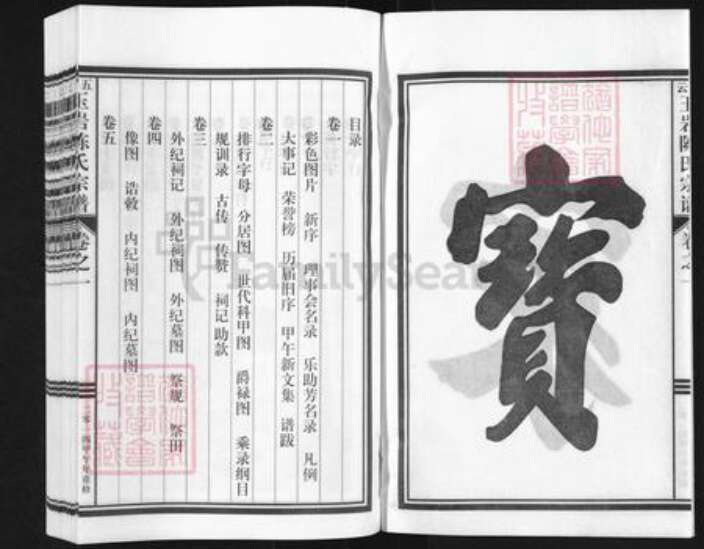 寶
目录
卷一
彩色图片 新序 理事会名录 乐助芳名录 凡例
大事记 荣誉榜 历届旧序 甲午新文集 谱跋
卷二
排行字母 分居图 世代科甲图 爵禄图 乘录纲目
规训录 古传 传赞 祠记助款
卷三
外纪祠记 外纪祠图 外纪墓图 祭规 祭田
卷四
像图 诰敕 内纪祠图 内纪墓图
卷五
玉岩陈氏宗谱
卷之一
FamilySearch